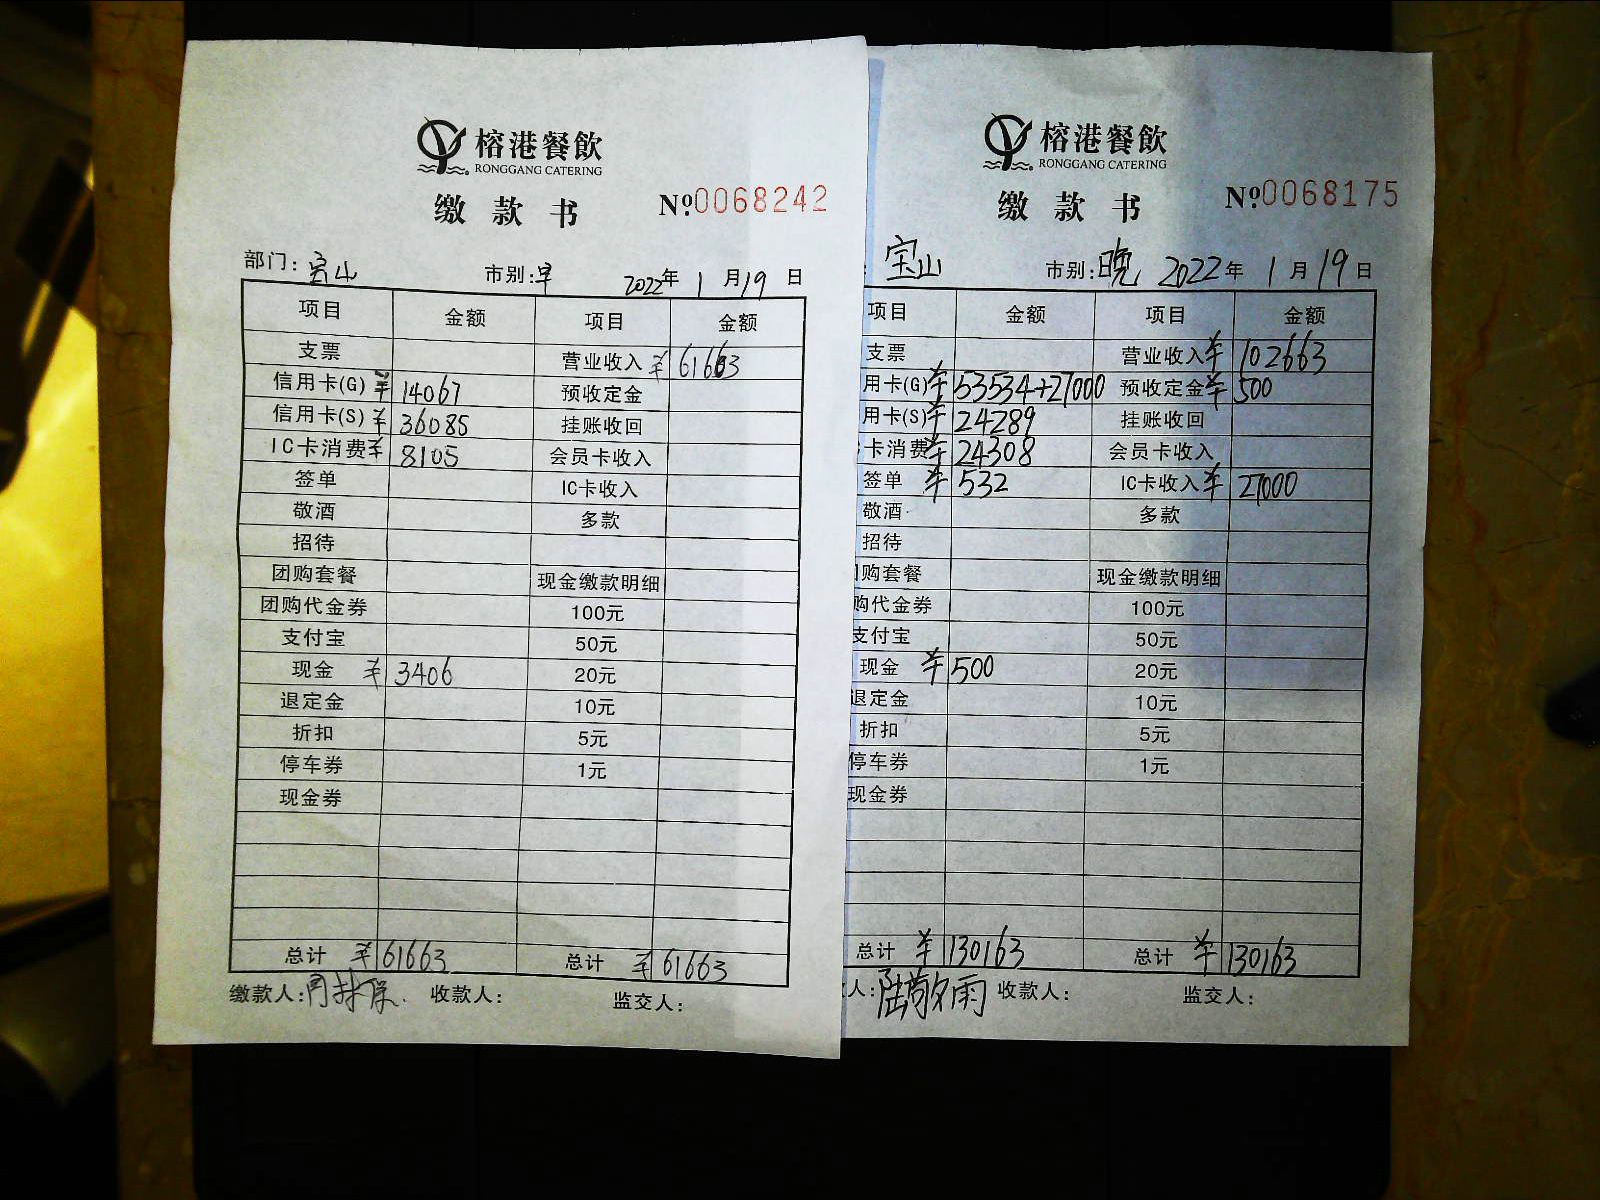 榕港餐飲
RONGGANG CATERING
缴款书
№0068242
部门: 宝山 市别: 早 2022年 1月19日
项目 金额 项目 金额
支票 营业收入 ¥ 61663
信用卡(G) ¥ 14067 预收定金
信用卡(S) ¥ 36085 挂账收回
IC卡消费 ¥ 8105 会员卡收入
签单 IC卡收入
敬酒 多款
招待
团购套餐 现金缴款明细
团购代金券 100元
支付宝 50元
现金 ¥ 3406 20元
退定金 10元
折扣 5元
停车券 1元
现金券
总计 ¥ 61663 总计 ¥ 61663
缴款人: 收款人: 监交人:
榕港餐飲
RONGGANG CATERING
缴款书
№0068175
: 宝山 市别: 晚 2022年 1月19日
项目 金额 项目 金额
支票 营业收入 ¥ 102663
用卡(G) ¥ 53534+27000 预收定金 ¥ 500
用卡(S) ¥ 24289 挂账收回
卡消费 ¥ 24308 会员卡收入
签单 ¥ 532 IC卡收入 ¥ 27000
敬酒 多款
招待
购套餐 现金缴款明细
购代金券 100元
支付宝 50元
现金 ¥ 500 20元
退定金 10元
折扣 5元
停车券 1元
现金券
总计 ¥ 130163 总计 ¥ 130163
人: 陆敬雨 收款人: 监交人: